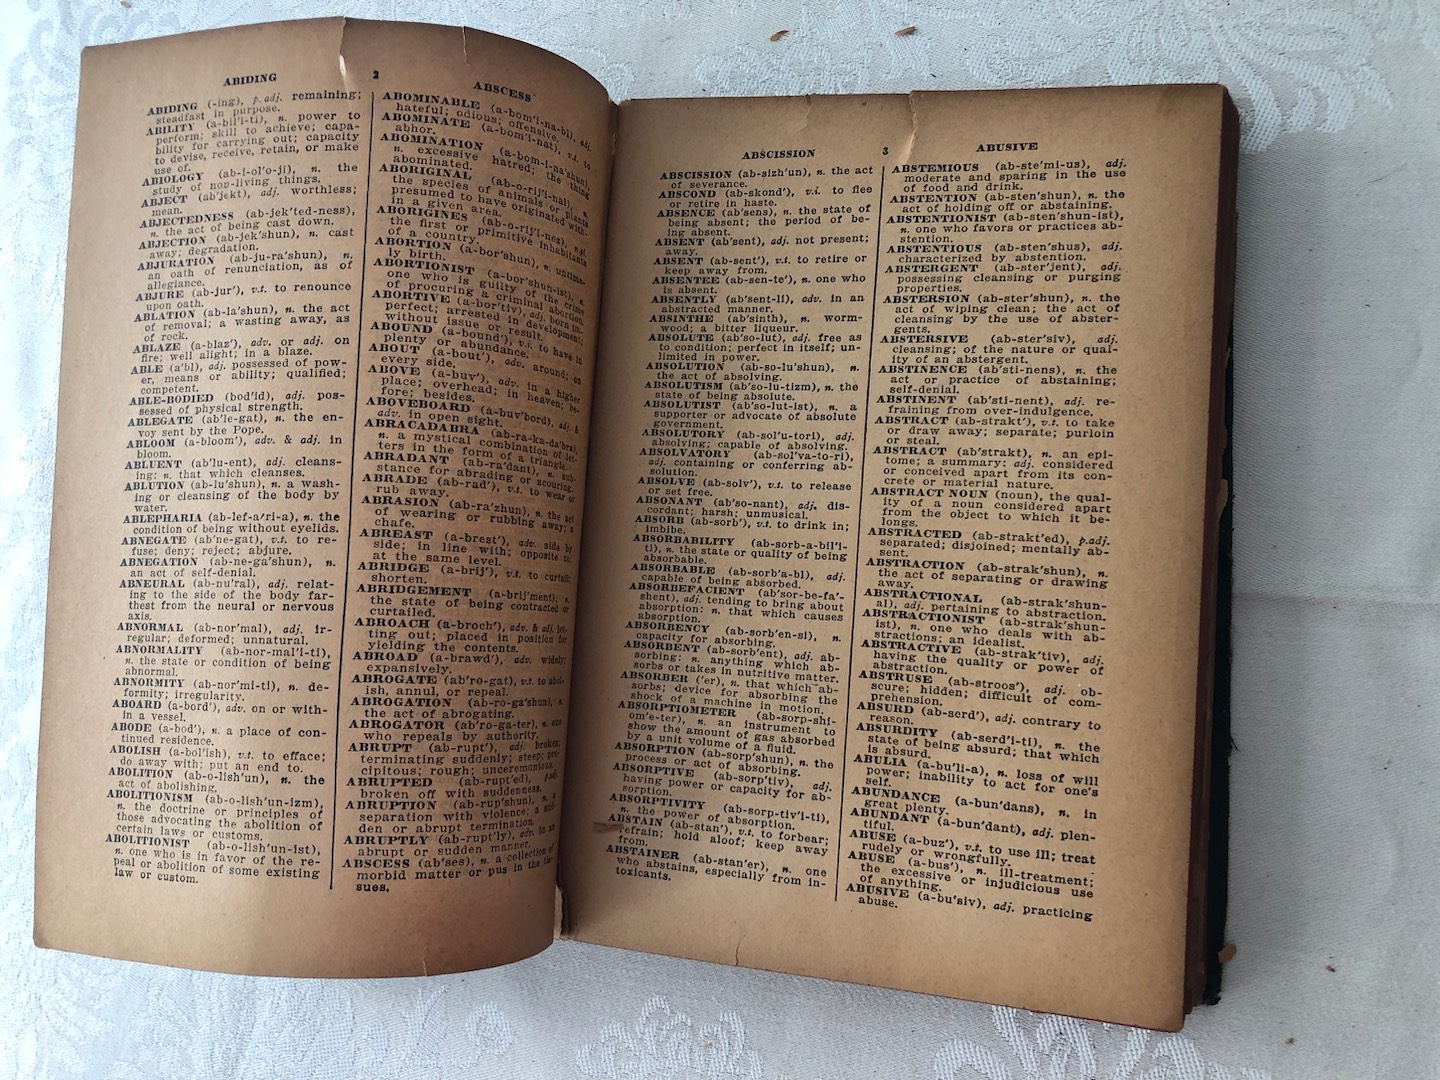 ABIDING 2 ABSCESS
ABIDING (-ing), p. adj. remaining;
steadfast in purpose.
ABILITY (a-bil'i-ti), n. power to
perform; skill to achieve; capa-
bility for carrying out; capacity
to devise, receive, retain, or make
use of.
ABIOLOGY (ab-i-ol'o-ji), n. the
study of non-living things.
ABJECT (ab'jekt), adj. worthless;
mean.
ABJECTEDNESS (ab-jek'ted-ness),
n. the act of being cast down.
ABJECTION (ab-jek'shun), n. cast
away; degradation.
ABJURATION (ab-ju-ra'shun), n.
an oath of renunciation, as of
allegiance.
ABJURE (ab-jur'), v.t. to renounce
upon oath.
ABLATION (ab-la'shun), n. the act
of removal; a wasting away, as
of rock.
ABLAZE (a-blaz'), adv. or adj. on
fire; well alight; in a blaze.
ABLE (a'bl), adj. possessed of pow-
er, means or ability; qualified;
competent.
ABLE-BODIED (bod'id), adj. pos-
sessed of physical strength.
ABLEGATE (ab'le-gat), n. the en-
voy sent by the Pope.
ABLOOM (a-bloom'), adv. & adj. in
bloom.
ABLUENT (ab'lu-ent), adj. cleans-
ing; n. that which cleanses.
ABLUTION (ab-lu'shun), n. a wash-
ing or cleansing of the body by
water.
ABLEPHARIA (ab-lef-a'ri-a), n. the
condition of being without eyelids.
ABNEGATE (ab'ne-gat), v.t. to re-
fuse; deny; reject; abjure.
ABNEGATION (ab-ne-ga'shun), n.
an act of self-denial.
ABNEURAL (ab-nu'ral), adj. relat-
ing to the side of the body far-
thest from the neural or nervous
axis.
ABNORMAL (ab-nor'mal), adj. ir-
regular; deformed; unnatural.
ABNORMALITY (ab-nor-mal'i-ti),
n. the state or condition of being
abnormal.
ABNORMITY (ab-nor'mi-ti), n. de-
formity; irregularity.
ABOARD (a-bord'), adv. on or with-
in a vessel.
ABODE (a-bod'), n. a place of con-
tinued residence.
ABOLISH (a-bol'ish), v.t. to efface;
do away with; put an end to.
ABOLITION (ab-o-lish'un), n. the
act of abolishing.
ABOLITIONISM (ab-o-lish'un-izm),
n. the doctrine or principles of
those advocating the abolition of
certain laws or customs.
ABOLITIONIST (ab-o-lish'un-ist),
n. one who is in favor of the re-
peal or abolition of some existing
law or custom.
ABOMINABLE (a-bom'i-na-bl), adj.
hateful; odious; offensive.
ABOMINATE (a-bom'i-nat), v.t. to
abhor.
ABOMINATION (a-bom-i-na'shun),
n. excessive hatred; the thing
abominated.
ABORIGINAL (ab-o-rij'i-nal), n.
the species of animals or plants
presumed to have originated with-
in a given area.
ABORIGINES (ab-o-rij'i-nez), n.pl.
the first or primitive inhabitants
of a country.
ABORTION (a-bor'shun), n. untime-
ly birth.
ABORTIONIST (a-bor'shun-ist), n.
one who is guilty of the crime
of procuring a criminal abortion.
ABORTIVE (a-bor'tiv), adj. born im-
perfect; arrested in development;
without issue or result.
ABOUND (a-bound'), v.i. to have in
plenty or abundance.
ABOUT (a-bout'), adv. around; on
every side.
ABOVE (a-buv'), adv. in a higher
place; overhead; in heaven; be-
fore; besides.
ABOVEBOARD (a-buv'bord), adj. &
adv. in open sight.
ABRACADABRA (ab-ra-ka-da'bra),
n. a mystical combination of let-
ters in the form of a triangle.
ABRADANT (ab-ra'dant), n. sub-
stance for abrading or scouring.
ABRADE (ab-rad'), v.t. to wear or
rub away.
ABRASION (ab-ra'zhun), n. the act
of wearing or rubbing away; a
chafe.
ABREAST (a-brest'), adv. side by
side; in line with; opposite to;
at the same level.
ABRIDGE (a-brij'), v.t. to curtail;
shorten.
ABRIDGEMENT (a-brij'ment), n.
the state of being contracted or
curtailed.
ABROACH (a-broch'), adv. & adj. let-
ting out; placed in position for
yielding the contents.
ABROAD (a-brawd'), adv. widely;
expansively.
ABROGATE (ab'ro-gat), v.t. to abol-
ish, annul, or repeal.
ABROGATION (ab-ro-ga'shun), n.
the act of abrogating.
ABROGATOR (ab'ro-ga-ter), n. one
who repeals by authority.
ABRUPT (ab-rupt'), adj. broken,
terminating suddenly; steep; pre-
cipitous; rough; unceremonious.
ABRUPTED (ab-rupt'ed), p.adj.
broken off with suddenness.
ABRUPTION (ab-rup'shun), n. a
separation with violence; a sud-
den or abrupt termination.
ABRUPTLY (ab-rupt'ly), adv. in an
abrupt or sudden manner.
ABSCESS (ab'ses), n. a collection of
morbid matter or pus in the tis-
sues.
ABSCISSION 3 ABUSIVE
ABSCISSION (ab-sizh'un), n. the act
of severance.
ABSCOND (ab-skond'), v.i. to flee
or retire in haste.
ABSENCE (ab'sens), n. the state of
being absent; the period of be-
ing absent.
ABSENT (ab'sent), adj. not present;
away.
ABSENT (ab-sent'), v.t. to retire or
keep away from.
ABSENTEE (ab-sen-te'), n. one who
is absent.
ABSENTLY (ab'sent-li), adv. in an
abstracted manner.
ABSINTHE (ab'sinth), n. worm-
wood; a bitter liqueur.
ABSOLUTE (ab'so-lut), adj. free as
to condition; perfect in itself; un-
limited in power.
ABSOLUTION (ab-so-lu'shun), n.
the act of absolving.
ABSOLUTISM (ab'so-lu-tizm), n. the
state of being absolute.
ABSOLUTIST (ab'so-lut-ist), n. a
supporter or advocate of absolute
government.
ABSOLUTORY (ab-sol'u-tori), adj.
absolving; capable of absolving.
ABSOLVATORY (ab-sol'va-to-ri),
adj. containing or conferring ab-
solution.
ABSOLVE (ab-solv'), v.t. to release
or set free.
ABSONANT (ab'so-nant), adj. dis-
cordant; harsh; unmusical.
ABSORB (ab-sorb'), v.t. to drink in;
imbibe.
ABSORBABILITY (ab-sorb-a-bil'i-
ti), n. the state or quality of being
absorbable.
ABSORBABLE (ab-sorb'a-bl), adj.
capable of being absorbed.
ABSORBEFACIENT (ab'sor-be-fa'-
shent), adj. tending to bring about
absorption: n. that which causes
absorption.
ABSORBENCY (ab-sorb'en-si), n.
capacity for absorbing.
ABSORBENT (ab-sorb'ent), adj. ab-
sorbing: n. anything which ab-
sorbs or takes in nutritive matter.
ABSORBER ('er), n. that which ab-
sorbs; device for absorbing the
shock of a machine in motion.
ABSORPTIOMETER (ab-sorp-shi-
om'e-ter), n. an instrument to
show the amount of gas absorbed
by a unit volume of a fluid.
ABSORPTION (ab-sorp'shun), n. the
process or act of absorbing.
ABSORPTIVE (ab-sorp'tiv), adj.
having power or capacity for ab-
sorption.
ABSORPTIVITY (ab-sorp-tiv'i-ti),
n. the power of absorption.
ABSTAIN (ab-stan'), v.t. to forbear;
refrain; hold aloof; keep away
from.
ABSTAINER (ab-stan'er), n. one
who abstains, especially from in-
toxicants.
ABSTEMIOUS (ab-ste'mi-us), adj.
moderate and sparing in the use
of food and drink.
ABSTENTION (ab-sten'shun), n. the
act of holding off or abstaining.
ABSTENTIONIST (ab-sten'shun-ist),
n. one who favors or practices ab-
stention.
ABSTENTIOUS (ab-sten'shus), adj.
characterized by abstention.
ABSTERGENT (ab-ster'jent), adj.
possessing cleansing or purging
properties.
ABSTERSION (ab-ster'shun), n. the
act of wiping clean; the act of
cleansing by the use of abster-
gents.
ABSTERSIVE (ab-ster'siv), adj.
cleansing; of the nature or qual-
ity of an abstergent.
ABSTINENCE (ab'sti-nens), n. the
act or practice of abstaining;
self-denial.
ABSTINENT (ab'sti-nent), adj. re-
fraining from over-indulgence.
ABSTRACT (ab-strakt'), v.t. to take
or draw away; separate; purloin
or steal.
ABSTRACT (ab'strakt), n. an epi-
tome; a summary: adj. considered
or conceived apart from its con-
crete or material nature.
ABSTRACT NOUN (noun), the qual-
ity of a noun considered apart
from the object to which it be-
longs.
ABSTRACTED (ab-strakt'ed), p.adj.
separated; disjoined; mentally ab-
sent.
ABSTRACTION (ab-strak'shun), n.
the act of separating or drawing
away.
ABSTRACTIONAL (ab-strak'shun-
al), adj. pertaining to abstraction.
ABSTRACTIONIST (ab-strak'shun-
ist), n. one who deals with ab-
stractions; an idealist.
ABSTRACTIVE (ab-strak'tiv), adj.
having the quality or power of
abstraction.
ABSTRUSE (ab-stroos'), adj. ob-
scure; hidden; difficult of com-
prehension.
ABSURD (ab-serd'), adj. contrary to
reason.
ABSURDITY (ab-serd'i-ti), n. the
state of being absurd; that which
is absurd.
ABULIA (a-bu'li-a), n. loss of will
power; inability to act for one's
self.
ABUNDANCE (a-bun'dans), n. in
great plenty.
ABUNDANT (a-bun'dant), adj. plen-
tiful.
ABUSE (a-buz'), v.t. to use ill; treat
rudely or wrongfully.
ABUSE (a-bus'), n. ill-treatment;
the excessive or injudicious use
of anything.
ABUSIVE (a-bu'siv), adj. practicing
abuse.